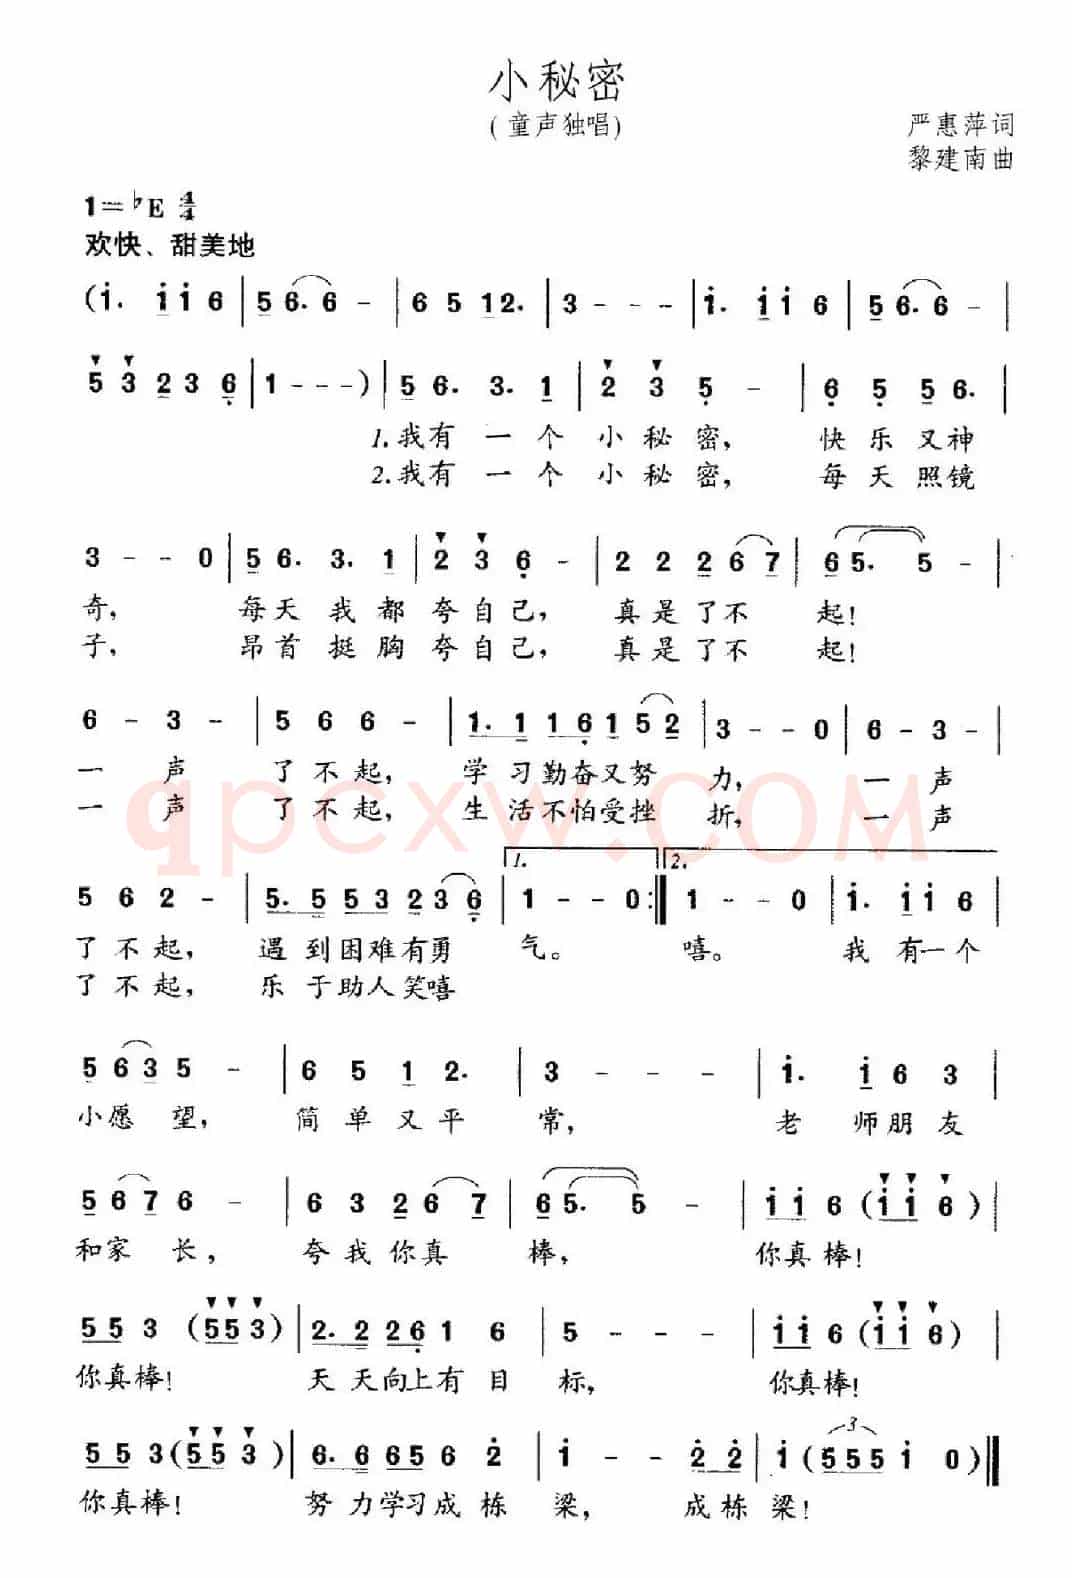 小秘密
(童声独唱)
严惠萍词
黎建南曲
1=♭E 4/4
欢快、甜美地
(i. i i 6 | 5 6. 6 - | 6 5 1 2. | 3 - - - | i. i i 6 | 5 6. 6 - |
5 3 2 3 6 | 1 - - -) | 5 6. 3. 1 | 2 3 5 - | 6 5 5 6. |
1.我有 一 个 小 秘 密, 快 乐 又神
2.我有 一 个 小 秘 密, 每 天 照镜
3 - - 0 | 5 6. 3. 1 | 2 3 6 - | 2 2 2 6 7 | 6 5. 5 - |
奇, 每天 我 都 夸 自 己, 真 是 了 不 起!
子, 昂首 挺 胸 夸 自 己, 真 是 了 不 起!
6 - 3 - | 5 6 6 - | 1. 1 1 6 1 5 2 | 3 - - 0 | 6 - 3 - |
一 声 了 不 起, 学 习勤奋又努 力, 一 声
一 声 了 不 起, 生 活不怕受挫 折, 一 声
qpcxw.COM
1. 2.
5 6 2 - | 5. 5 5 3 2 3 6 | 1 - - 0 :| 1 - - 0 | i. i i 6 |
了 不 起, 遇 到困难有勇 气。 嘻。 我 有一个
了 不 起, 乐 于助人笑嘻
5 6 3 5 - | 6 5 1 2. | 3 - - - | i. i 6 3 |
小愿 望, 简 单 又 平 常, 老 师朋 友
5 6 7 6 - | 6 3 2 6 7 | 6 5. 5 - | i i 6 (i i 6) |
和家 长, 夸 我 你真 棒, 你真棒!
5 5 3 (5 5 3) | 2. 2 2 6 1 6 | 5 - - - | i i 6 (i i 6) |
你真棒! 天 天向上有 目 标, 你真棒!
5 5 3 (5 5 3) | 6. 6 6 5 6 2 | i - - 2 2 | i (5 5 5 i 0) ‖
3
你真棒! 努 力学习成 栋 梁, 成栋 梁!